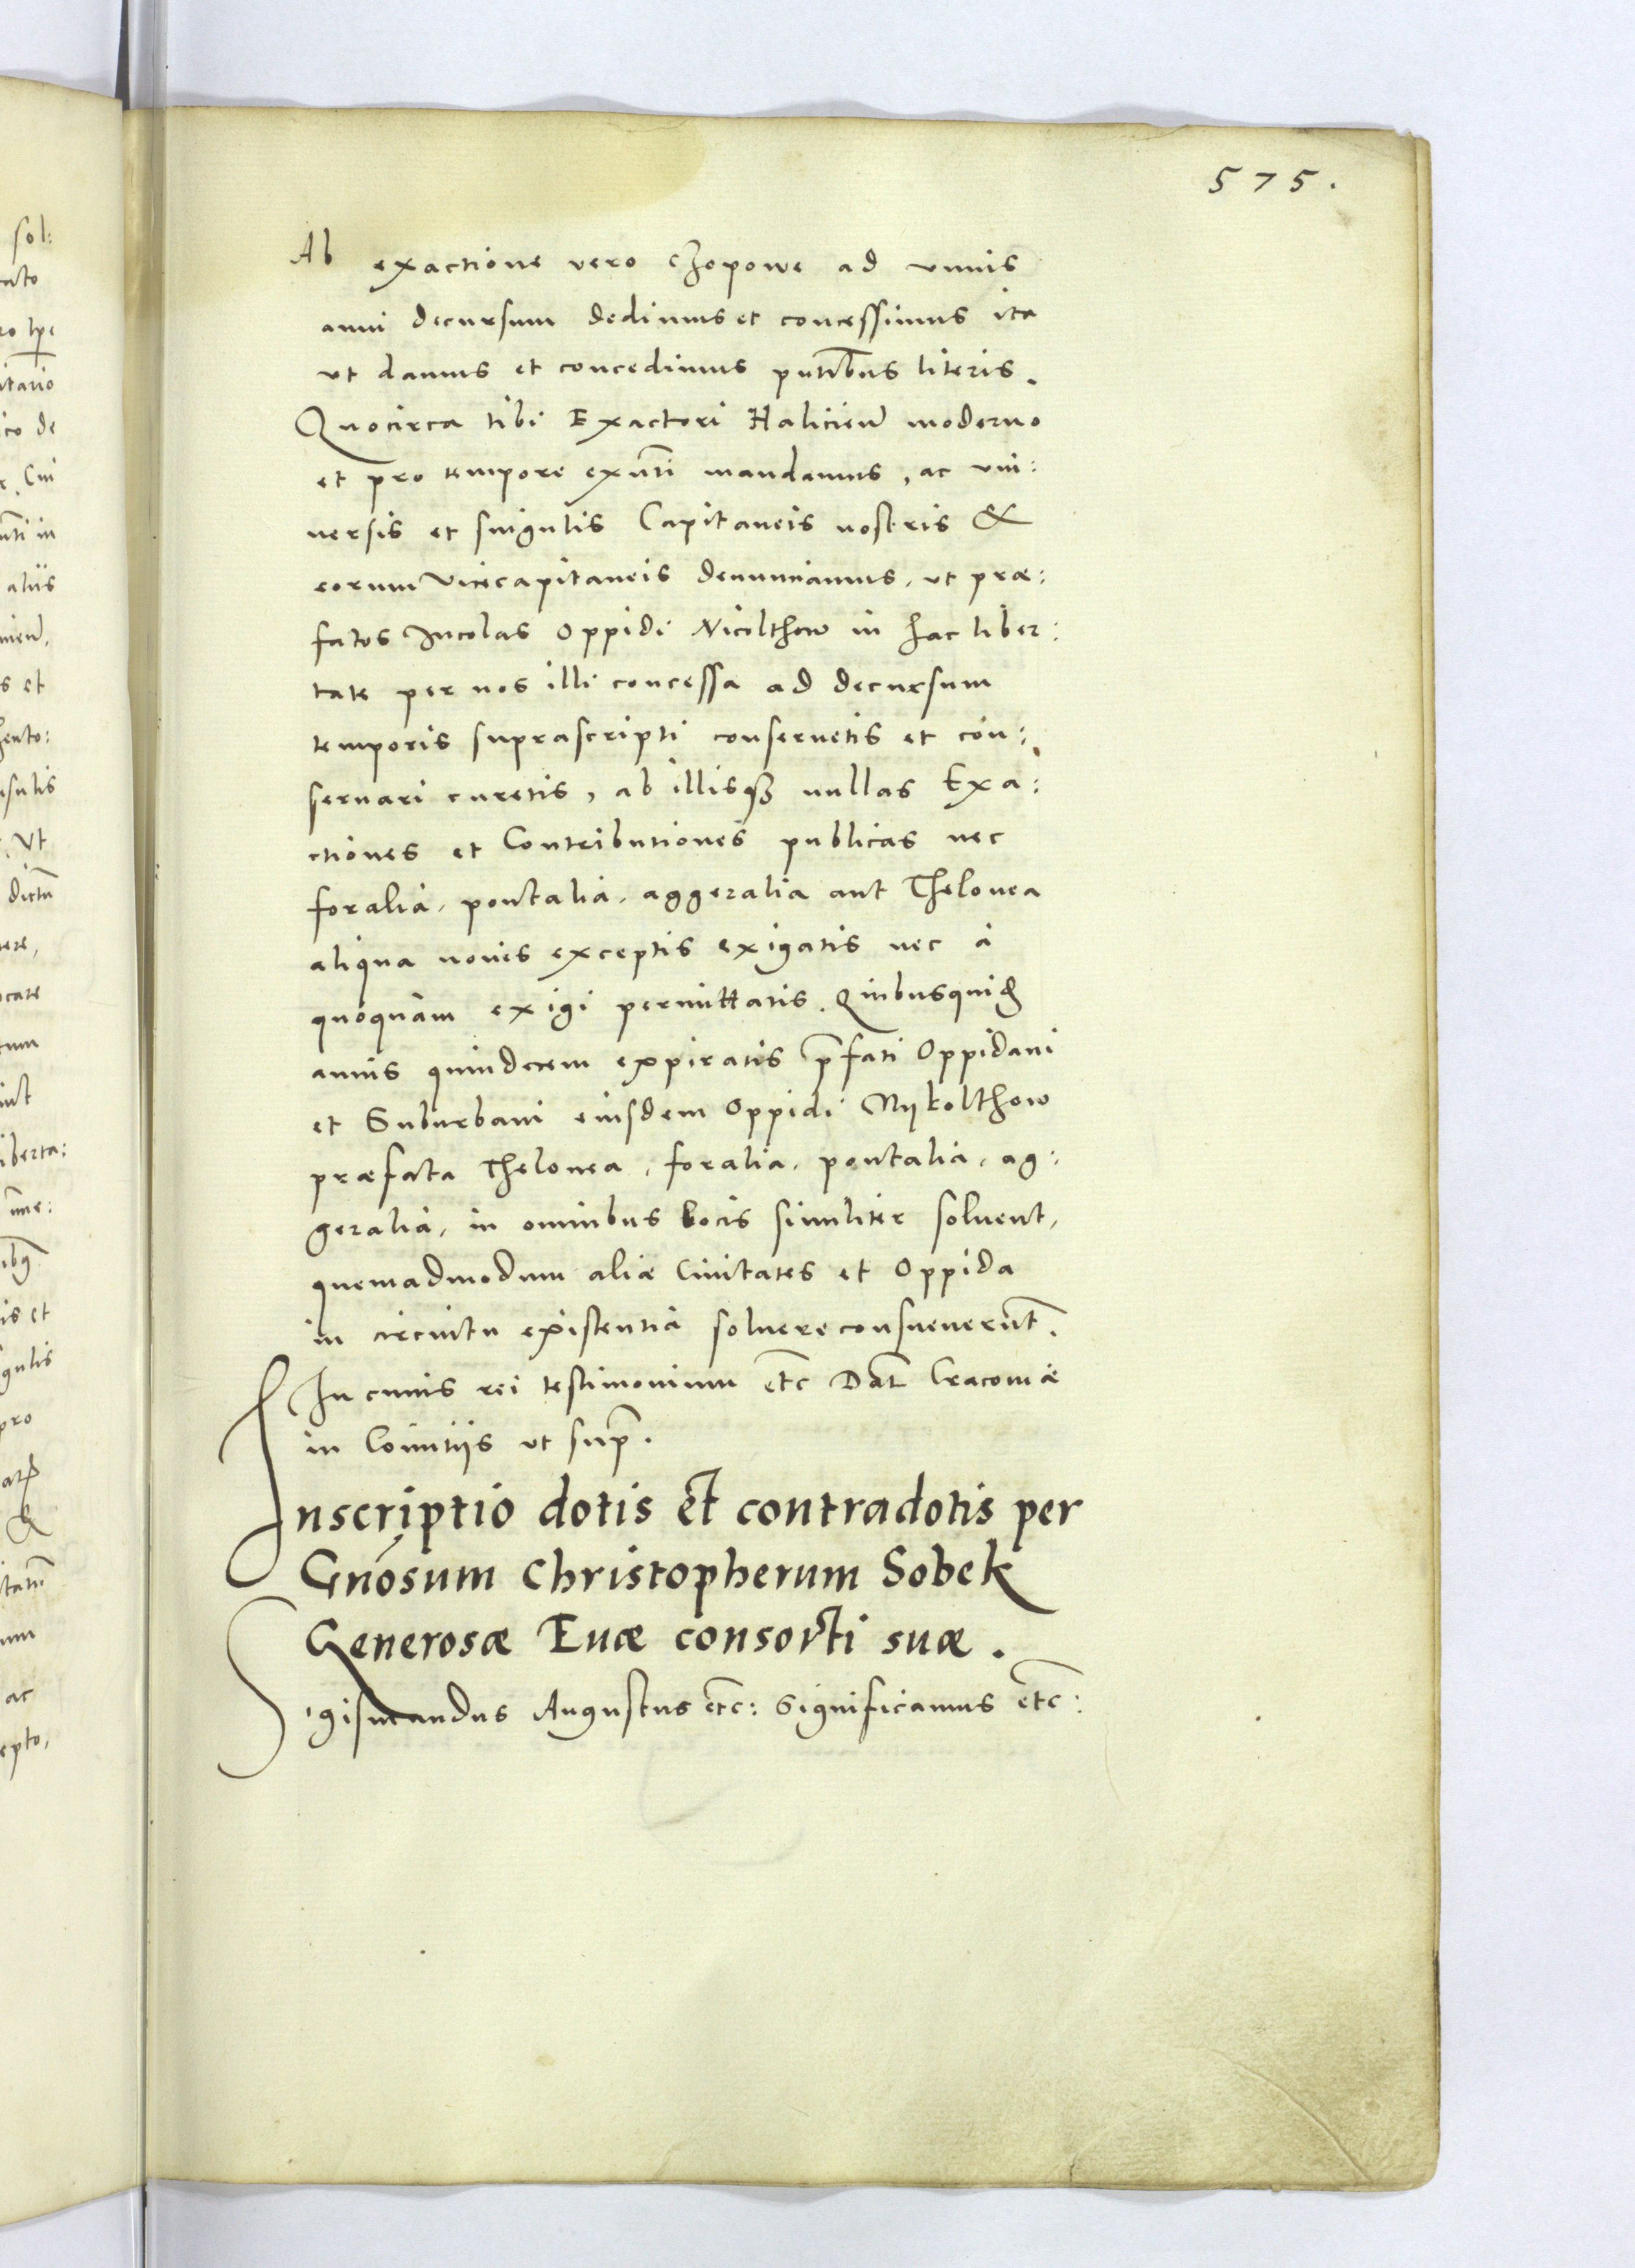 575.
Ab exactione vero czopowe ad vnius
anni decursum dedimus et concessimus ita
vt damus et concedimus pntibus literis.
Quocirca tibi Exactori Halicien moderno
et pro tempore exnti mandamus, ac vni:
uersis et singulis Capitaneis nostris &
eorum Vicecapitaneis denunciamus, vt præ:
fatos Incolas Oppidi Nicolthow in hac liber:
tate per nos illi concessa ad decursum
temporis suprascripti conseruetis et con:
seruari curetis, ab illisqz nullas Exa:
ctiones et Contributiones publicas nec
foralia, pontalia, aggeralia aut Thelonea
aliqua nouis exceptis exigatis nec à
quoquam exigi permittatis. Quibusquid
annis quindecem expiratis pfati Oppidani
et Suburbani eiusdem Oppidi Nykolthow
præfata Thelonea, foralia, pontalia, ag:
geralia, in omnibus locis similiter soluent,
quemadmodum aliæ Ciuitates et Oppida
in circuitu existentia soluere consueuerunt.
In cuius rei testimonium etc Dat Cracouiæ
in Comitijs vt sup.
Inscriptio dotis et contradotis per
Gnosum Christopherum Sobek
Generosæ Euæ consorti suæ.
Sigismundus Augustus etc: Significamus etc: